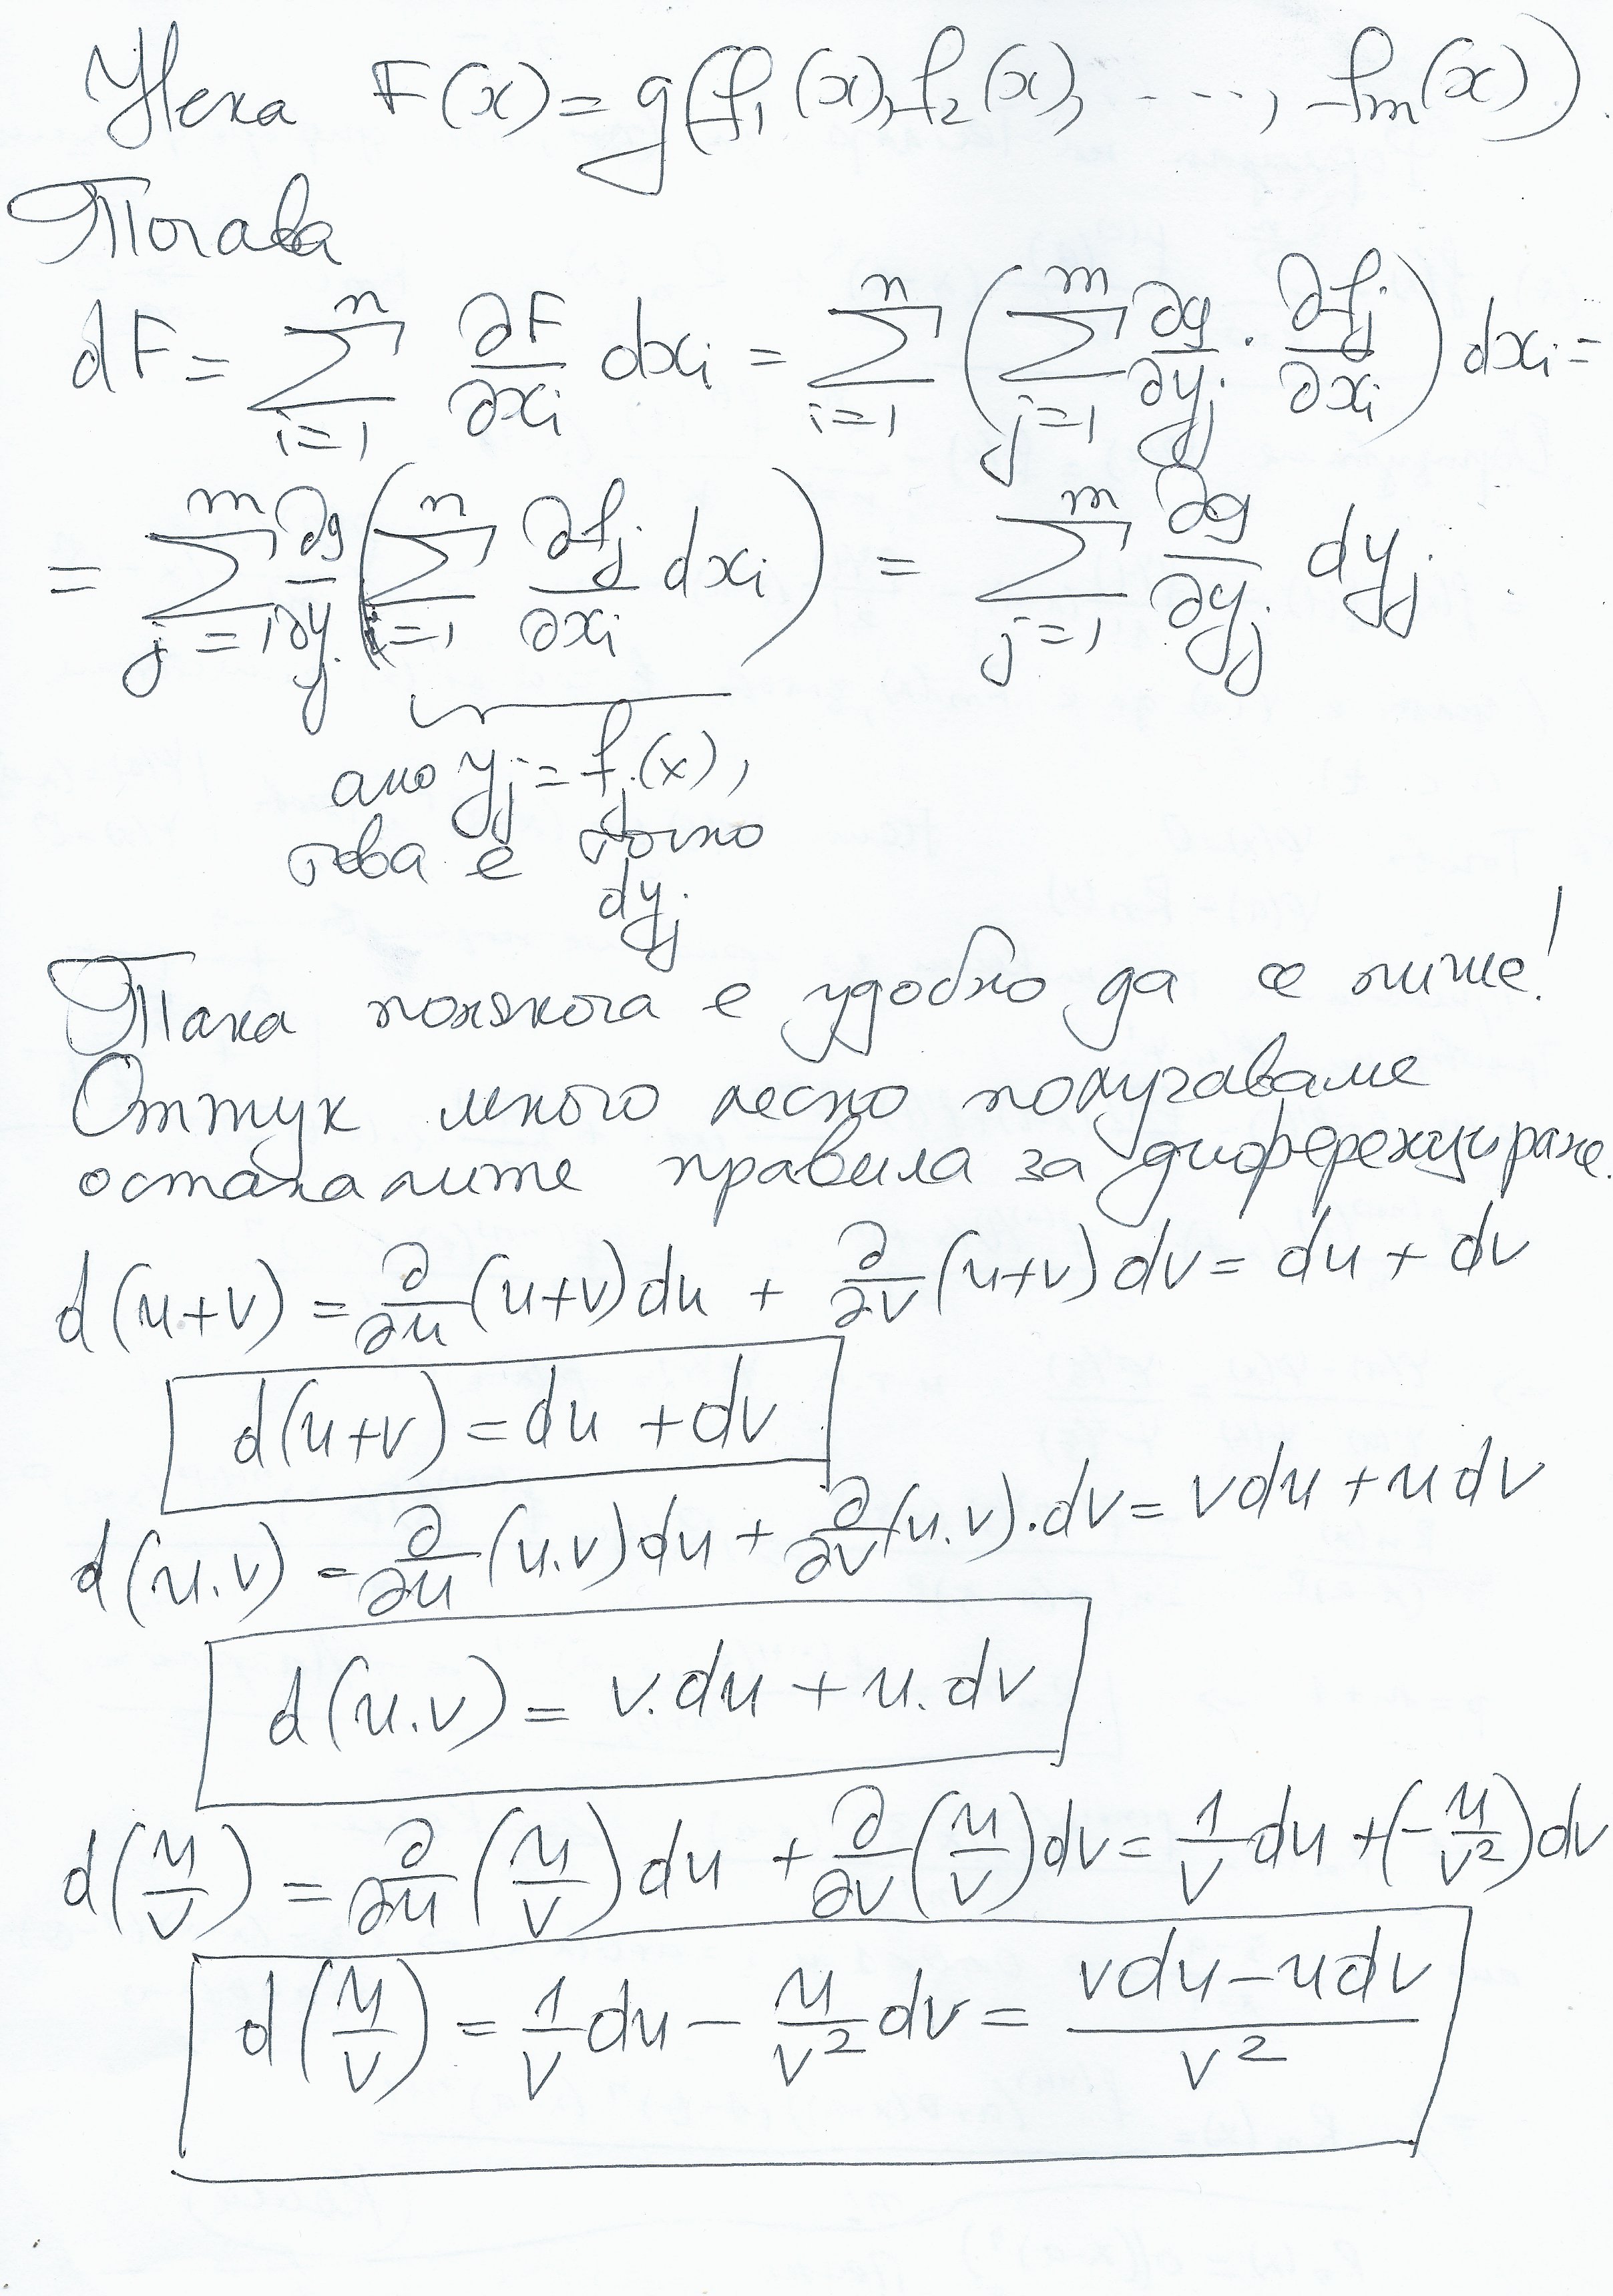 Нека F(x) = g(f₁(x), f₂(x), ..., fₘ(x)).
Тогава
dF = ∑_{i=1}^{n} ∂F/∂xᵢ dxᵢ = ∑_{i=1}^{n} (∑_{j=1}^{m} ∂g/∂yⱼ · ∂fⱼ/∂xᵢ) dxᵢ =
= ∑_{j=1}^{m} ∂g/∂yⱼ (∑_{i=1}^{n} ∂fⱼ/∂xᵢ dxᵢ) = ∑_{j=1}^{m} ∂g/∂yⱼ dyⱼ
ако yⱼ = fⱼ(x),
това е точно
dyⱼ
Така понякога е удобно да се пише!
Оттук много лесно получаваме
останалите правила за диференциране.
d(u+v) = ∂/∂u (u+v) du + ∂/∂v (u+v) dv = du + dv
d(u+v) = du + dv
d(u.v) = ∂/∂u (u.v) du + ∂/∂v (u.v).dv = vdu + udv
d(u.v) = v.du + u.dv
d(u/v) = ∂/∂u (u/v) du + ∂/∂v (u/v) dv = 1/v du + (-u/v²) dv
d(u/v) = 1/v du - u/v² dv = (vdu - udv)/v²